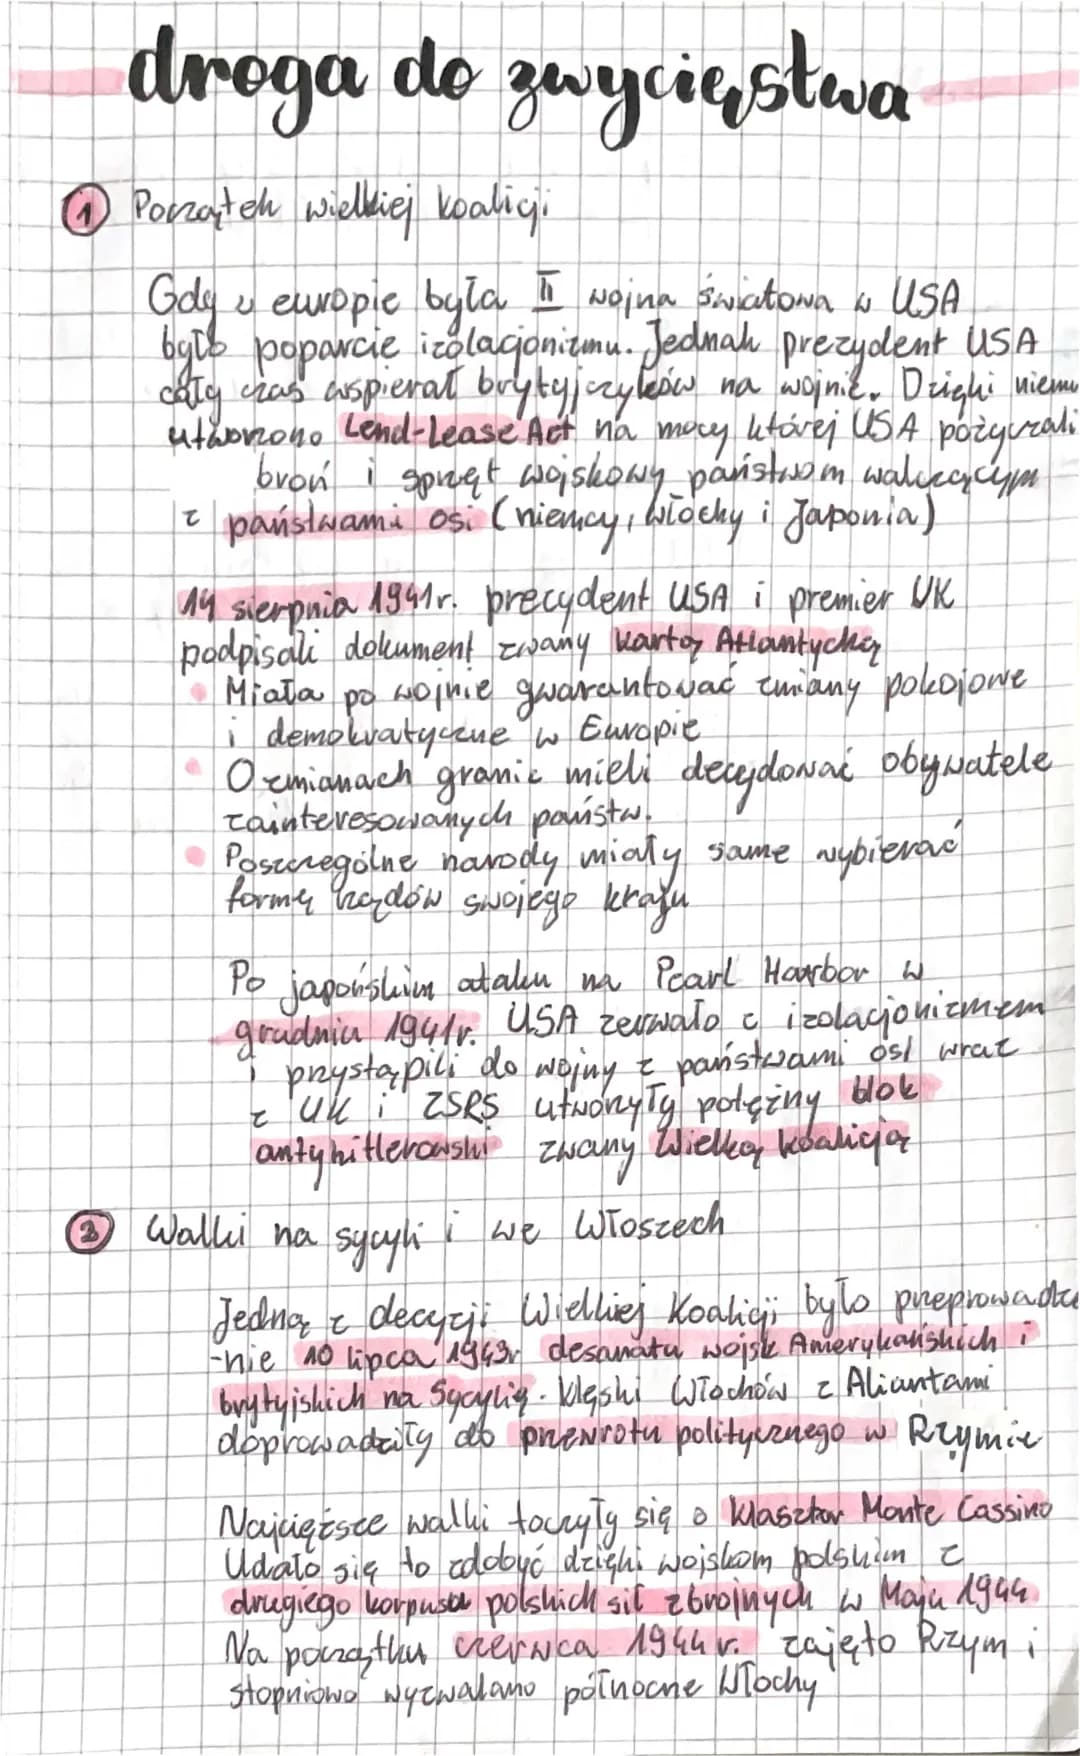 droga do zwycięstwa
1 Początek wielkiej koalicji
Gdy w europie była II wojna światowa w USA
było poparcie izolacjonizmu. Jednak prezydent USA
cały czas wspierał brytyjczyków na wojnie. Dzięki niemu
utworzono Lend-Lease Act na mocy której USA pożyczali
broń i sprzęt wojskowy państwom walczącym
z państwami osi (niemcy, włochy i Japonia)
14 sierpnia 1941r. prezydent USA i premier UK
podpisali dokument zwany kartą Atlantycką
• Miała po wojnie gwarantować zmiany pokojowe
i demokratyczne w Europie
• O zmianach granic mieli decydować obywatele
zainteresowanych państw.
• Poszczególne narody miały same wybierać
formę rządów swojego kraju
Po japońskim ataku na Pearl Harbor w
grudniu 1941r. USA zerwało z izolacjonizmem
i przystąpili do wojny z państwami osi wraz
z UK i ZSRS utworzyły potężny blok
antyhitlerowski zwany Wielką koalicją
2 Walki na sycyli i we Włoszech
Jedną z decyzji Wielkiej Koalicji było przeprowadze
-nie 10 lipca 1943r desanatu wojsk Amerykańskich i
brytyjskich na Sycylię. klęski Włochów z Aliantami
doprowadziły do przewrotu politycznego w Rzymie
Najcięższe walki toczyły się o klasztor Monte Cassino
Udało się to zdobyć dzięki wojskom polskim z
drugiego korpusu polskich sił zbrojnych w Maju 1944
Na początku czerwca 1944r. zajęto Rzym i
stopniowo wyzwalano północne Włochy